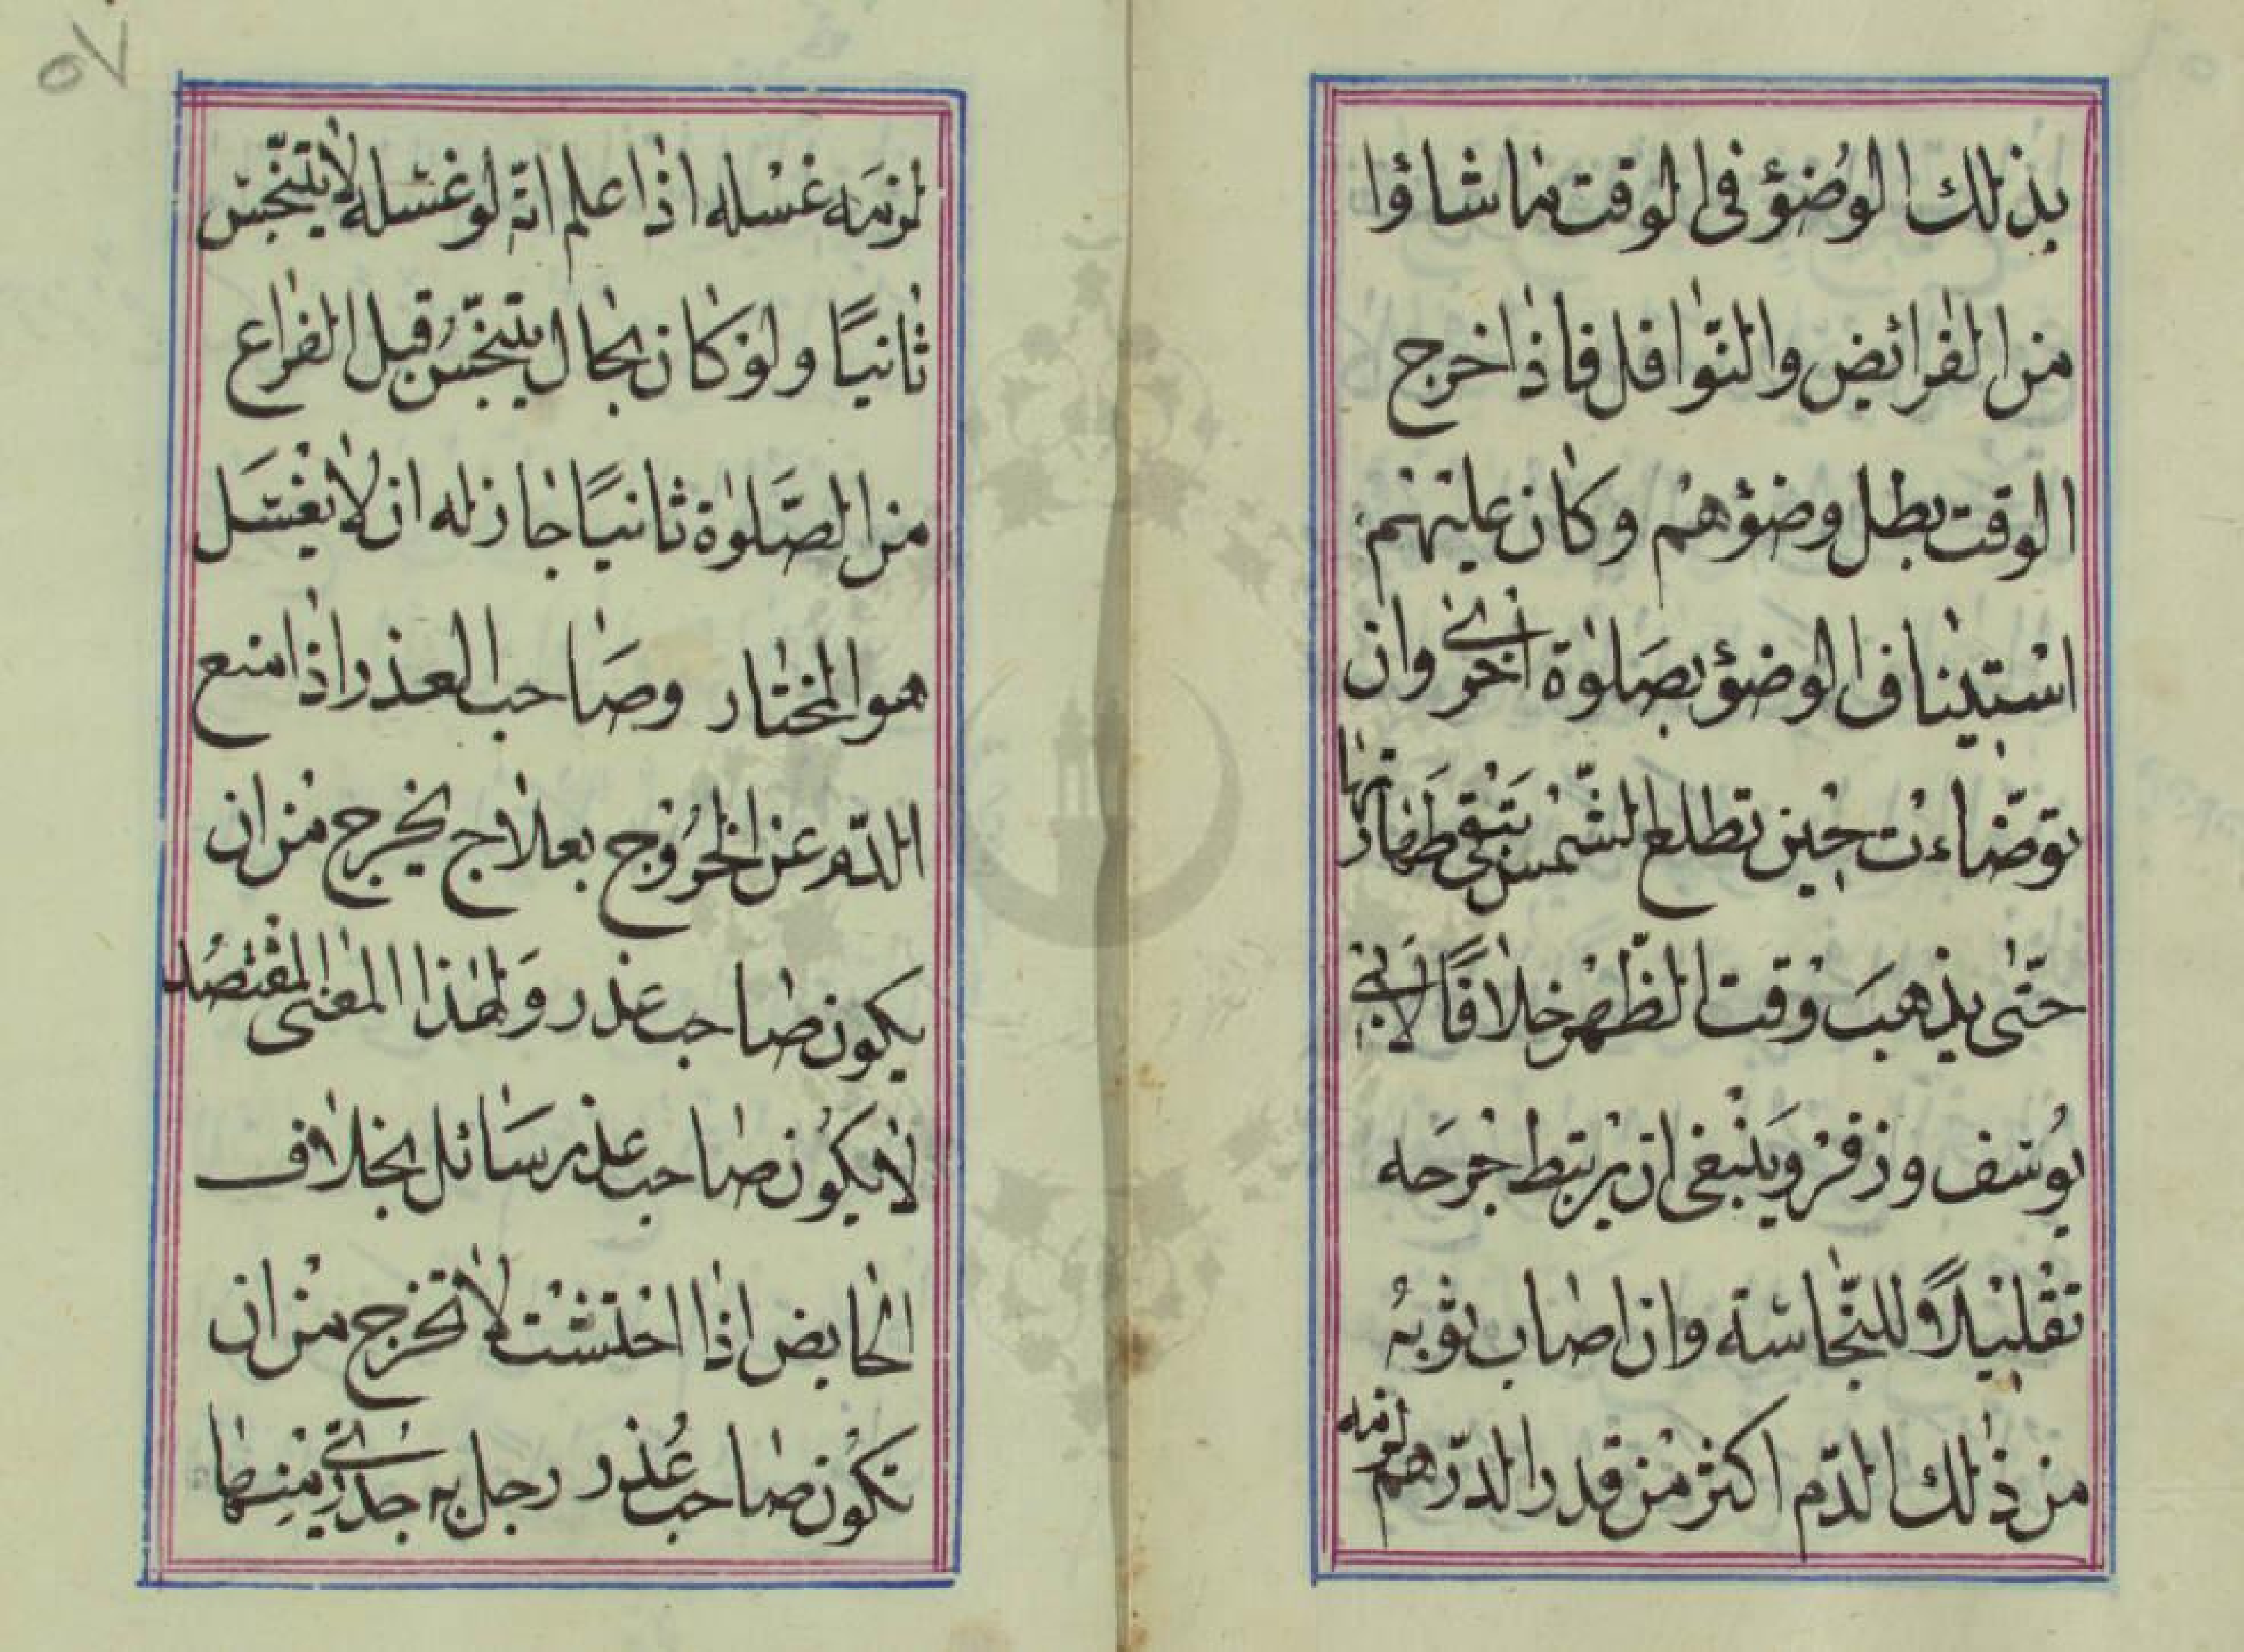 بذلك الوُضؤ فى الوقت ما شاؤا
من الفرائض والنّوافل فاذا خرج
الوقت بطل وضؤهم وكان عليهم
استيناف الوضؤ بصلوة اخرى وان
توضّاءت حين تطلع الشّمس تبقى طهارتها
حتّى يذهبَ وقت الظّهر خلافًا لابى
يوُسف وزفر وينبغى ان يربتط جرحه
تقليلاً للنّجاسة وان اصاب ثوبهُ
من ذلك الدّم اكثر من قدر الدّرهم لزمه
لزمَه غسله اذا علم انّه لو غسله لا يتنجّس
ثانيًا ولو كان بحال يتنجّسُ قبل الفراع
من الصَّلوة ثانيًا جاز له ان لا يغسَل
هو المختار وصاحب العذر اذا منع
الدّم عن الخرُوج بعلاج يخرج من ان
يكون صاحب عذر وَلهذا المعنى المفتصُد
لا يكوُن صاحب عذر سائل بخلاف
الحايض اذا احتشت لا تخرج من ان
تكوُن صاحب عُذر رجل به جدرىّ منها
٥٧